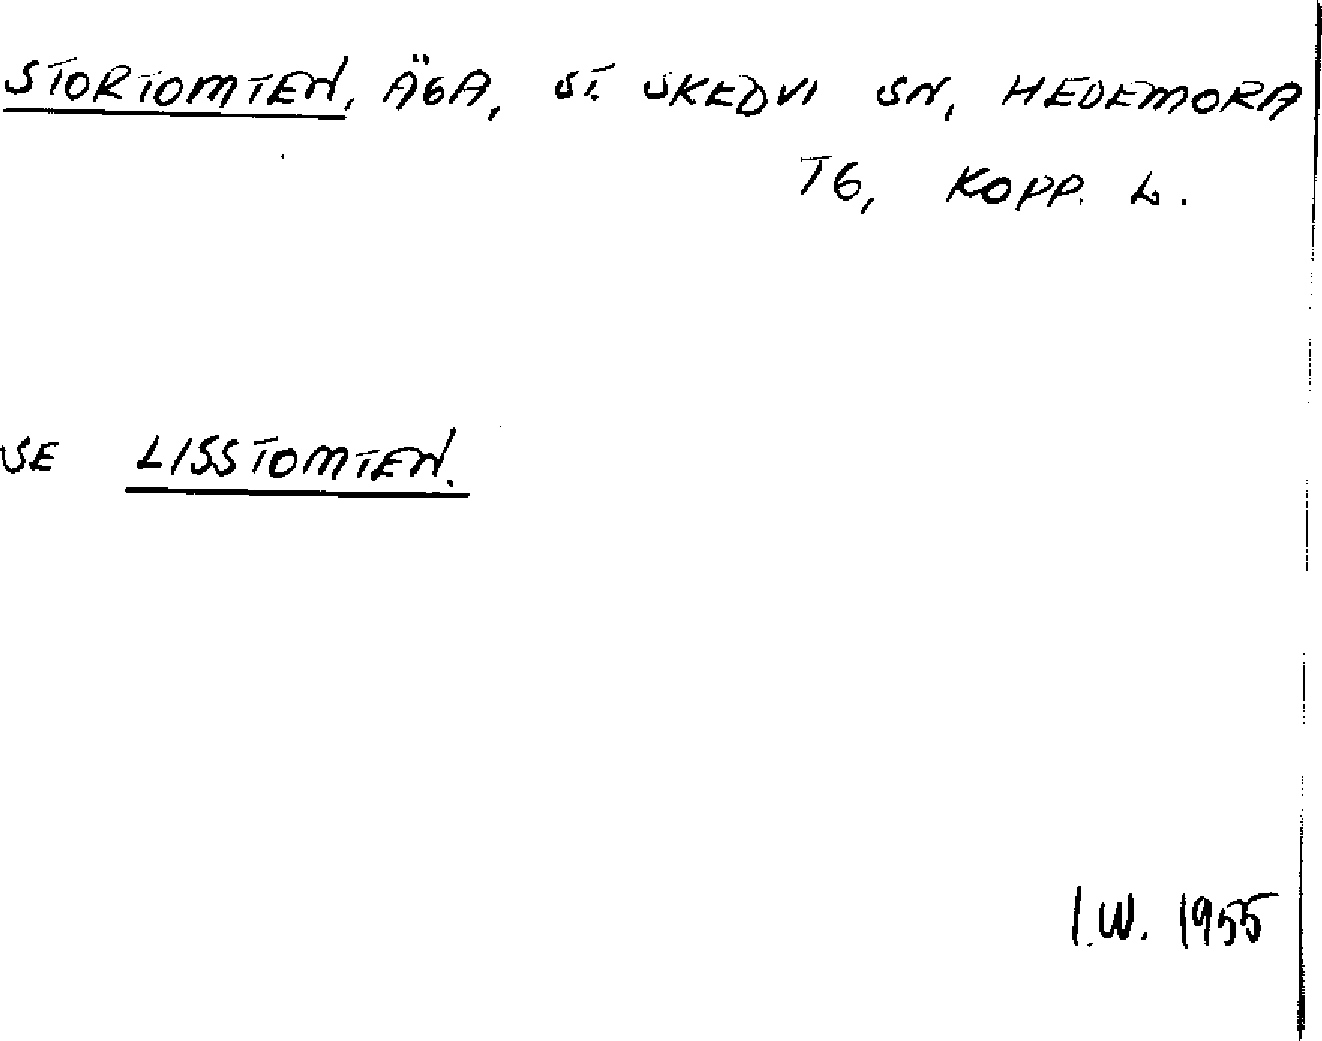 STORTOMTEN, ÄGA, ST. SKEDVI SN, HEDEMORA
TG, KOPP. L.
SE LISSTOMTEN.
I.W. 1955